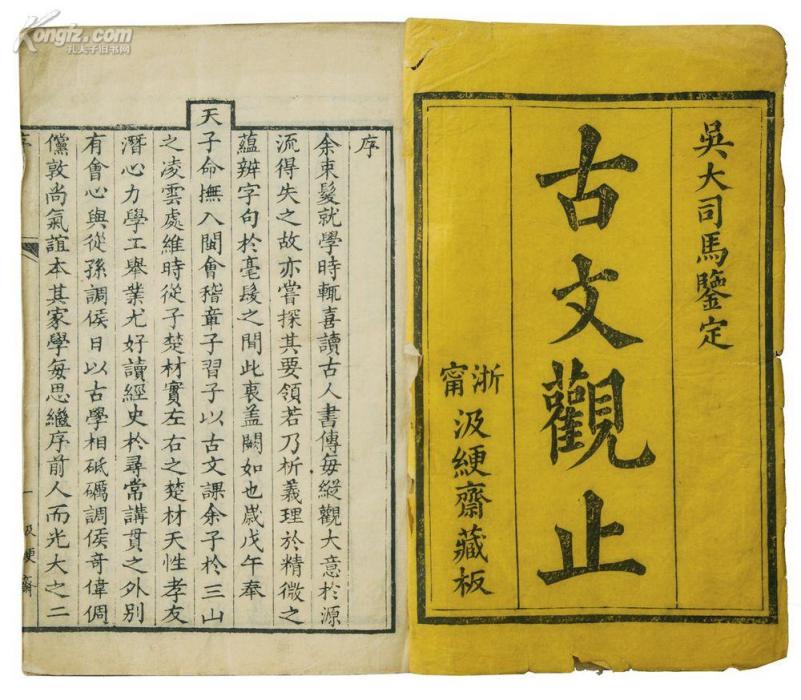 Kongfz.com
孔夫子旧书网
吳大司馬鑒定
古文觀止
浙甯
汲綆齋藏板
序
余束髮就學時輒喜讀古人書傳每縱觀大意於源
流得失之故亦嘗探其要領若乃析義理於精微之
蘊辨字句於毫髮之間此衷蓋闕如也歲戊午奉
天子命撫八閩會稽章子習子以古文課余子於三山
之凌雲處維時從子楚材實左右之楚材天性孝友
潛心力學工舉業尤好讀經史於尋常講貫之外別
有會心與從孫調侯日以古學相砥礪調侯奇偉倜
儻敦尚氣誼本其家學每思繼序前人而光大之二
序
一
汲綆齋